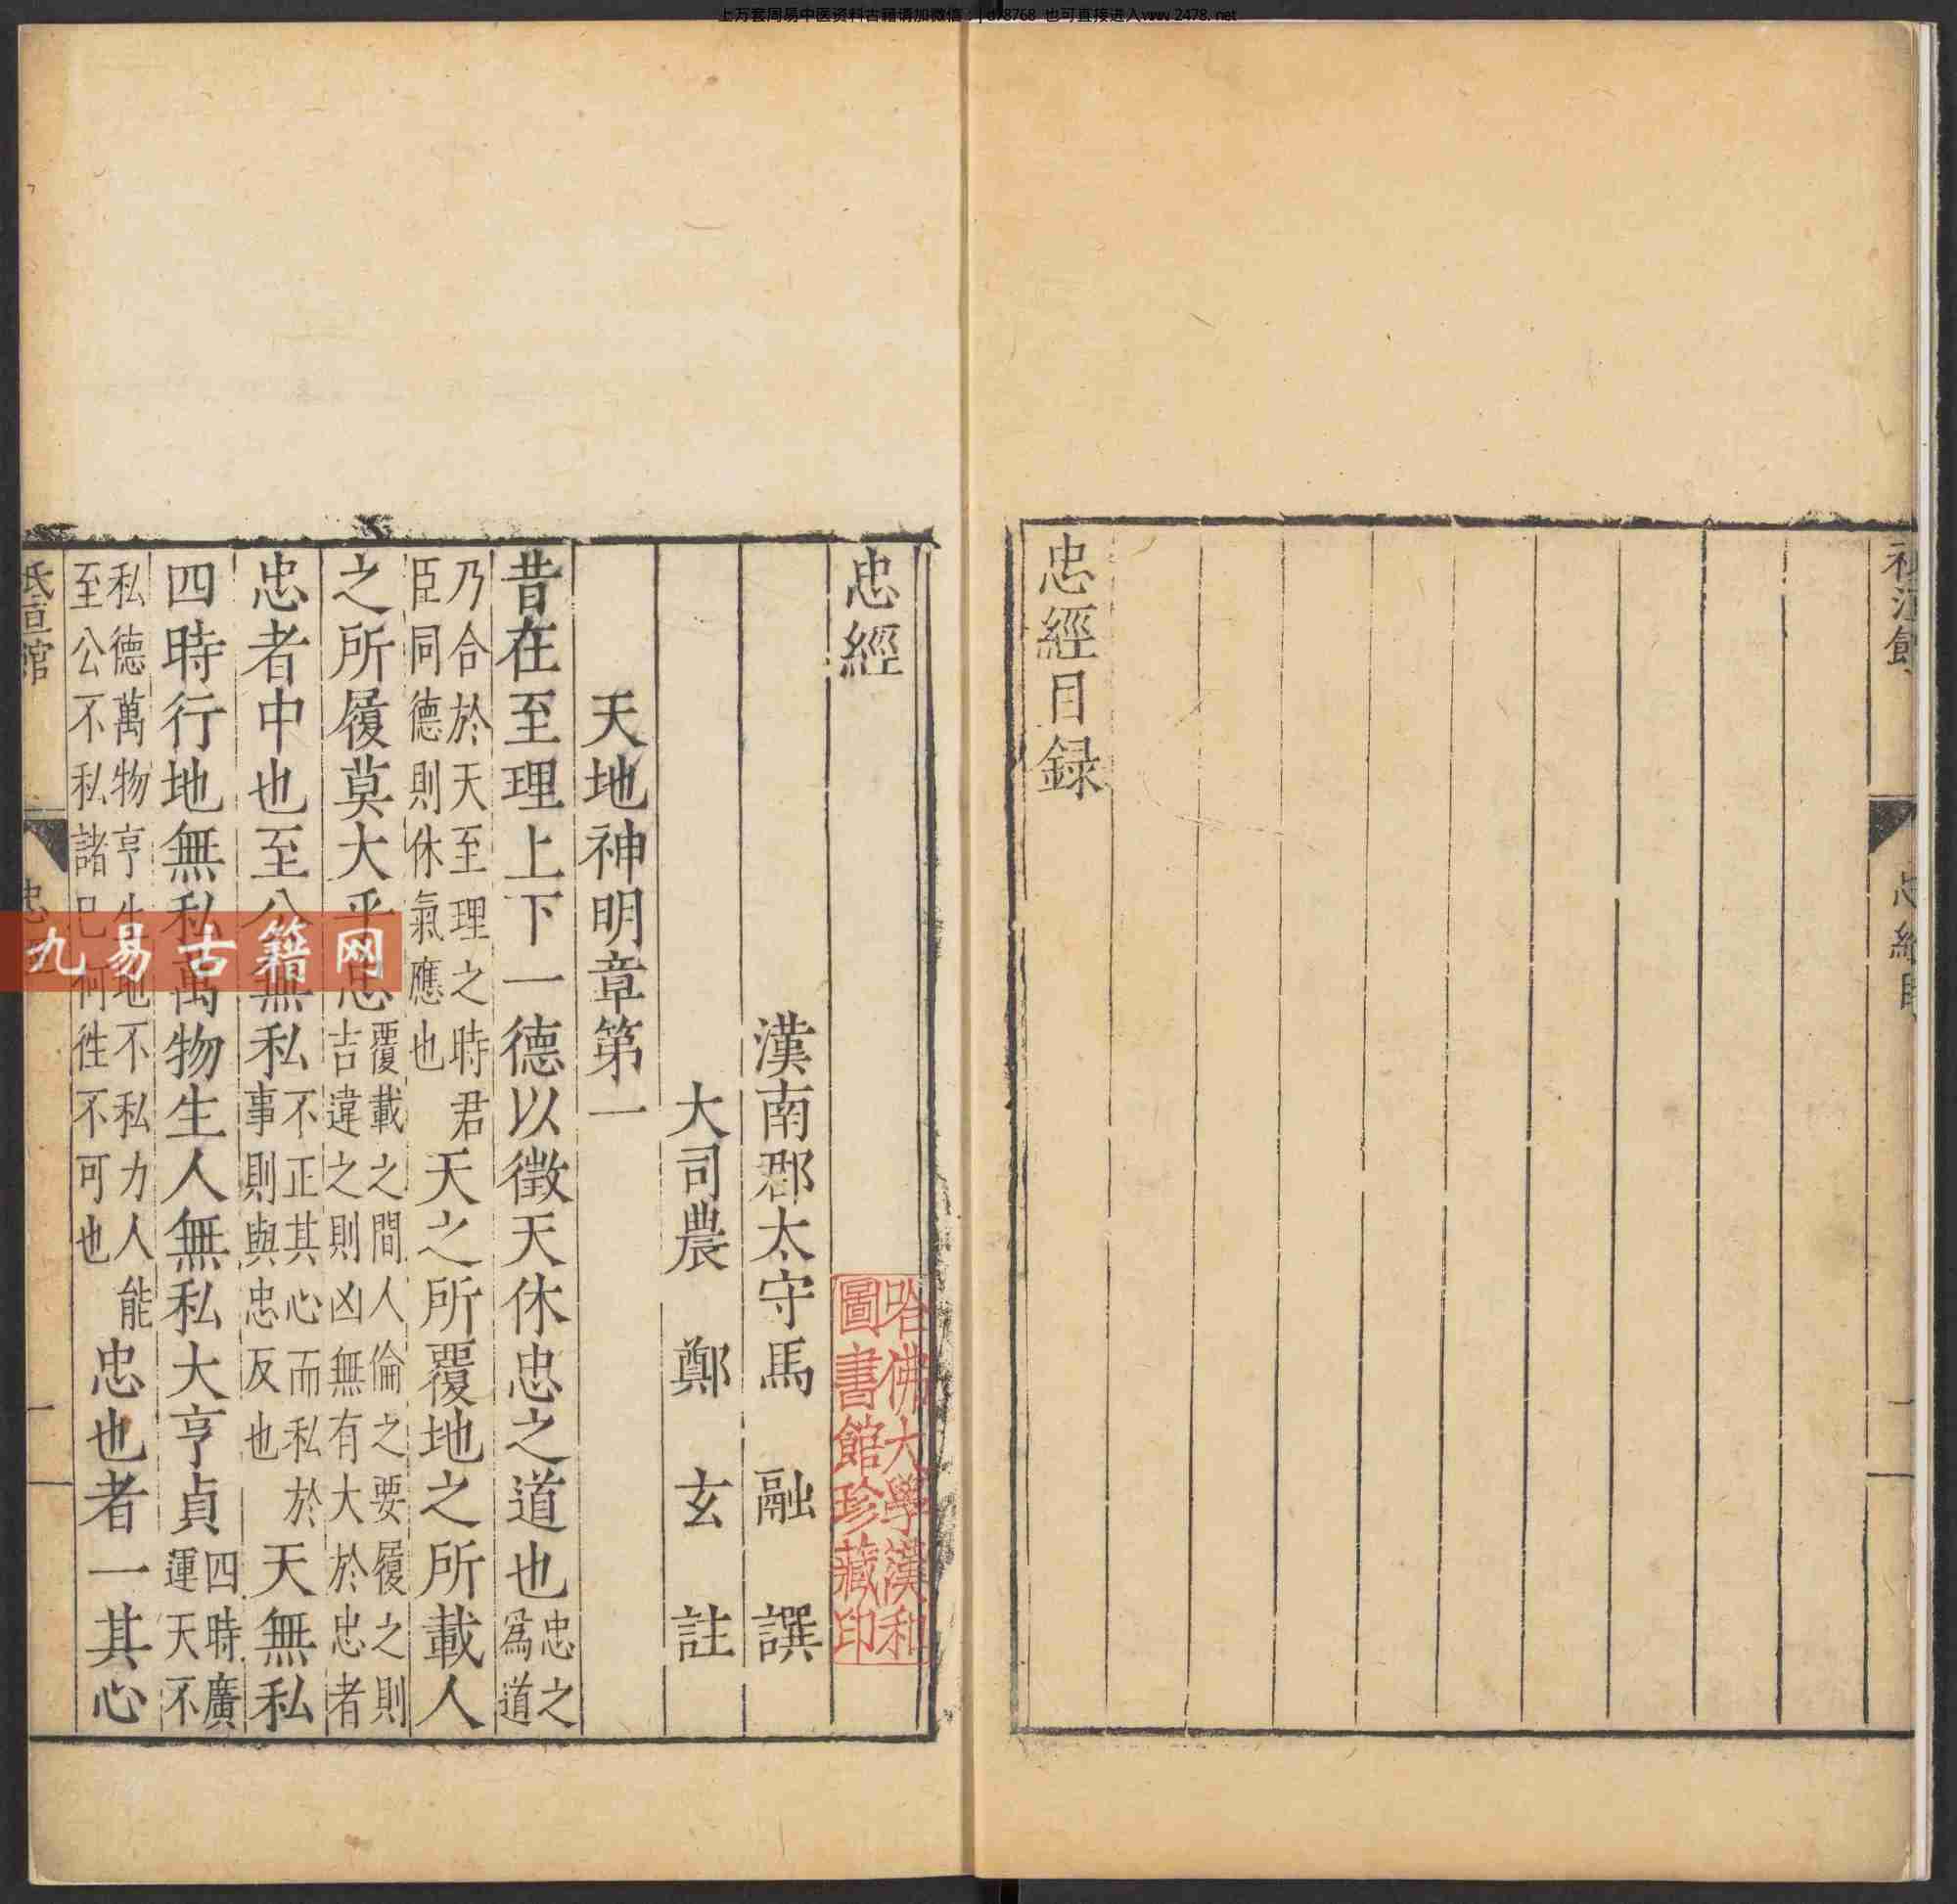 上万套周易中医资料古籍请加微信
d78768 也可直接进入www.2478.net
忠經目録
忠經
漢南郡太守馬融譔
大司農鄭玄註
天地神明章第一
昔在至理上下一德以徵天休忠之道也忠之爲道
乃合於天至理之時君臣同德則休氣應也天之所覆地之所載人
之所履莫大乎忠覆載之間人倫之要履之則吉違之則凶無有大於忠者
忠者中也至公無私不正其心而私於事則與忠反也天無私
四時行地無私萬物生人無私大亨貞四時廣運天不
私德萬物亨生地不私力人能至公不私諸己何徃不可也忠也者一其心
哈佛大學漢和圖書館珍藏印
九易古籍网